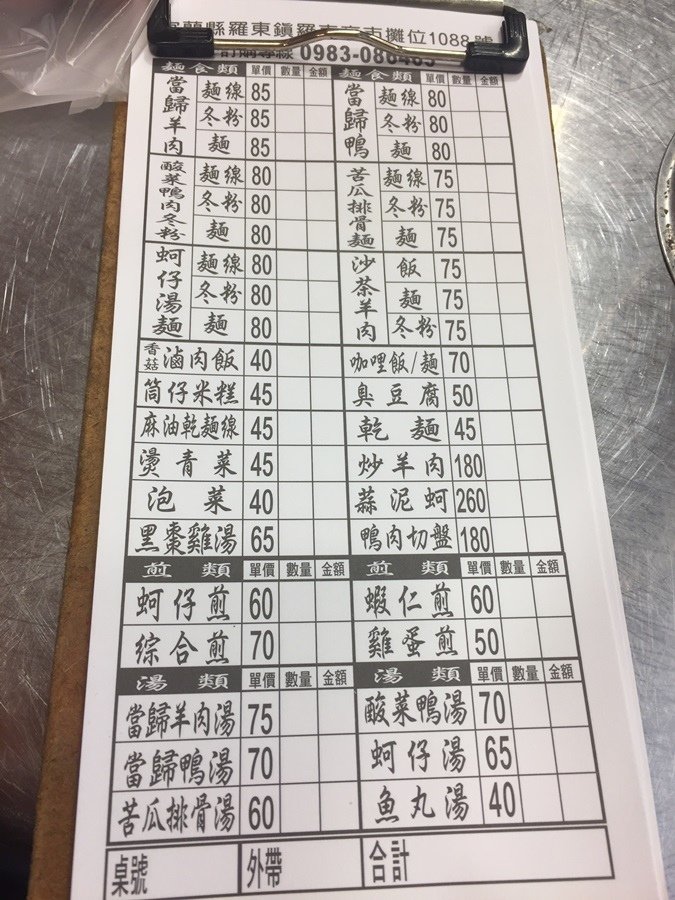 宜蘭縣羅東鎮羅東夜市攤位1088號
訂購專線 0983-086485
麵食類 單價 數量 金額 麵食類 單價 數量 金額
當歸羊肉 麵線 85 當歸鴨 麵線 80
冬粉 85 冬粉 80
麵 85 麵 80
酸菜鴨肉冬粉 麵線 80 苦瓜排骨麵 麵線 75
冬粉 80 冬粉 75
麵 80 麵 75
蚵仔湯麵 麵線 80 沙茶羊肉 飯 75
冬粉 80 麵 75
麵 80 冬粉 75
香菇滷肉飯 40 咖哩飯/麵 70
筒仔米糕 45 臭豆腐 50
麻油乾麵線 45 乾麵 45
燙青菜 45 炒羊肉 180
泡菜 40 蒜泥蚵 260
黑棗雞湯 65 鴨肉切盤 180
煎類 單價 數量 金額 煎類 單價 數量 金額
蚵仔煎 60 蝦仁煎 60
綜合煎 70 雞蛋煎 50
湯類 單價 數量 金額 湯類 單價 數量 金額
當歸羊肉湯 75 酸菜鴨湯 70
當歸鴨湯 70 蚵仔湯 65
苦瓜排骨湯 60 魚丸湯 40
桌號 外帶 合計